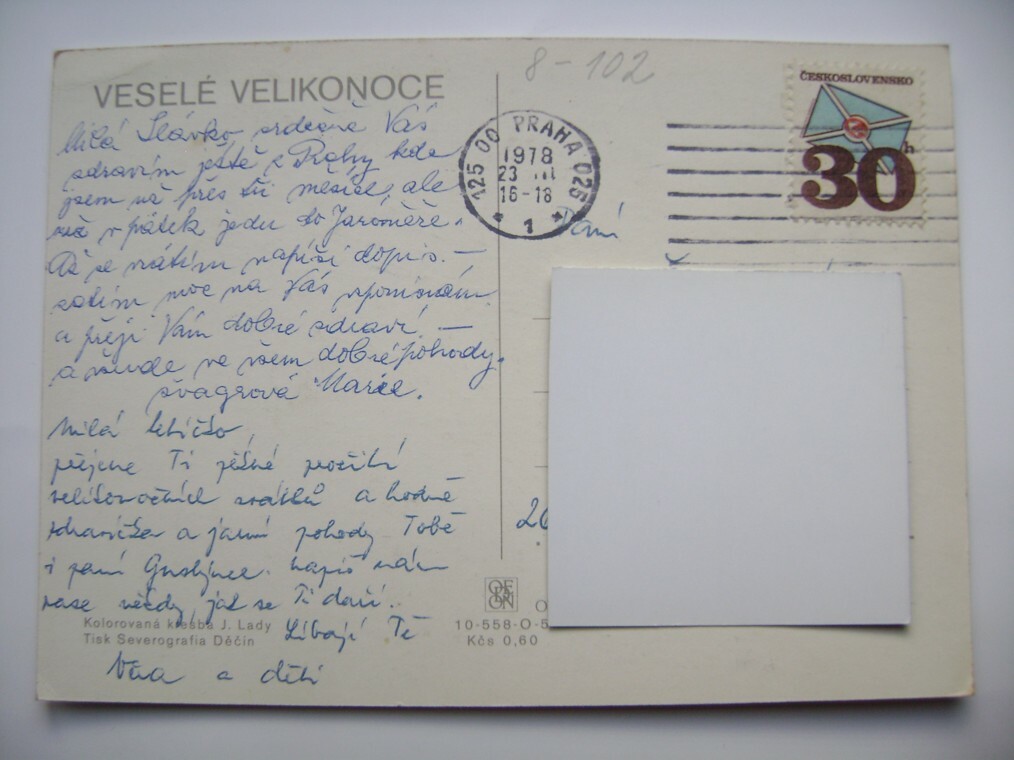 VESELÉ VELIKONOCE
8-102
ČESKOSLOVENSKO
30 h
125 00 PRAHA 025
1978
23 III
16-18
1
Milá Slávko srdečně Vás
zdravím ještě z Prahy kde
jsem už přes tři mesíce, ale
už v pátek jedu do Jaroměře.
Až se vrátím napíši dopis. —
zatím moc na Vás vzpomínám
a přeji Vám dobré zdraví —
a všude ve všem dobré pohody.
švagrová Marie.
Milá tetičko,
přejeme Ti pěkné prožití
velikonočních svátků a hodně
zdravíčka a jarní pohody Tobě
i paní. Napiš nám
zase někdy, jak se Ti daří.
Líbají Tě
Věra a děti
Paní
26
Kolorovaná kresba J. Lady
Tisk Severografia Děčín
10-558-O-5
Kčs 0,60